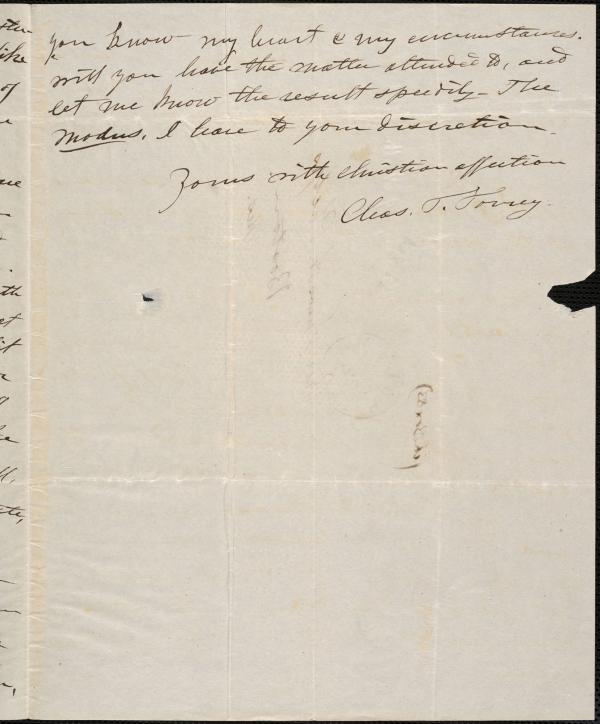 you know my heart & my circumstances.
will you have the matter attended to, and
let me know the result speedily - The
modus, I leave to your discretion.
Yours with Christian affection
Chas. T. Torrey.